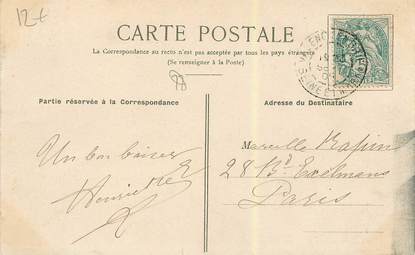 12 €
CARTE POSTALE
La Correspondance au recto n'est pas acceptée par tous les pays étrangers
(Se renseigner à la Poste)
Partie réservée à la Correspondance
Adresse du Destinataire
Un bon baiser
Henriette
Marcelle Rapin
28 Bd Exelmans
Paris